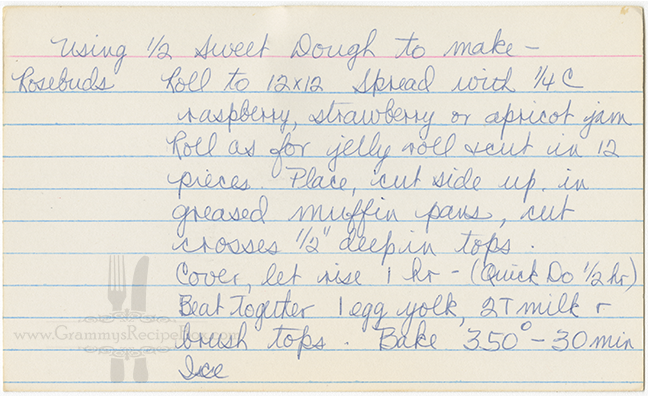 Using 1/2 Sweet Dough to make -
Rosebuds Roll to 12x12 Spread with 1/4 C
raspberry, strawberry or apricot jam
Roll as for jelly roll & cut in 12
pieces. Place, cut side up, in
greased muffin pans, cut
crosses 1/2" deep in tops.
Cover, let rise 1 hr - (Quick Do 1/2 hr)
Beat together 1 egg yolk, 2T milk &
www.GrammysRecipeBox.com
brush tops. Bake 350° - 30 min
Ice